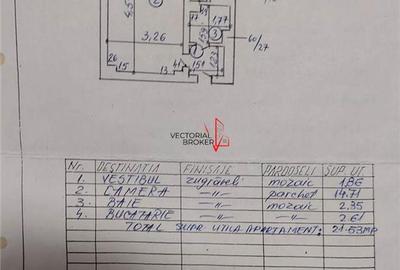 2
4,5
77
1,77
3
3,26
1,59
60/27
1
26
15
13
41
151
1,23
VECTORIAL
BROKER
Nr. DESTINATIA FINISAJE PARDOSELI SUP. UT
1. VESTIBUL zugraveli mozaic 1,86
2. CAMERA —"— parchet 14.71
3. BAIE —"— mozaic 2.35
4. BUCATARIE —"— —"— 2.61
TOTAL SUPR UTILA APARTAMENT: 21.53MP